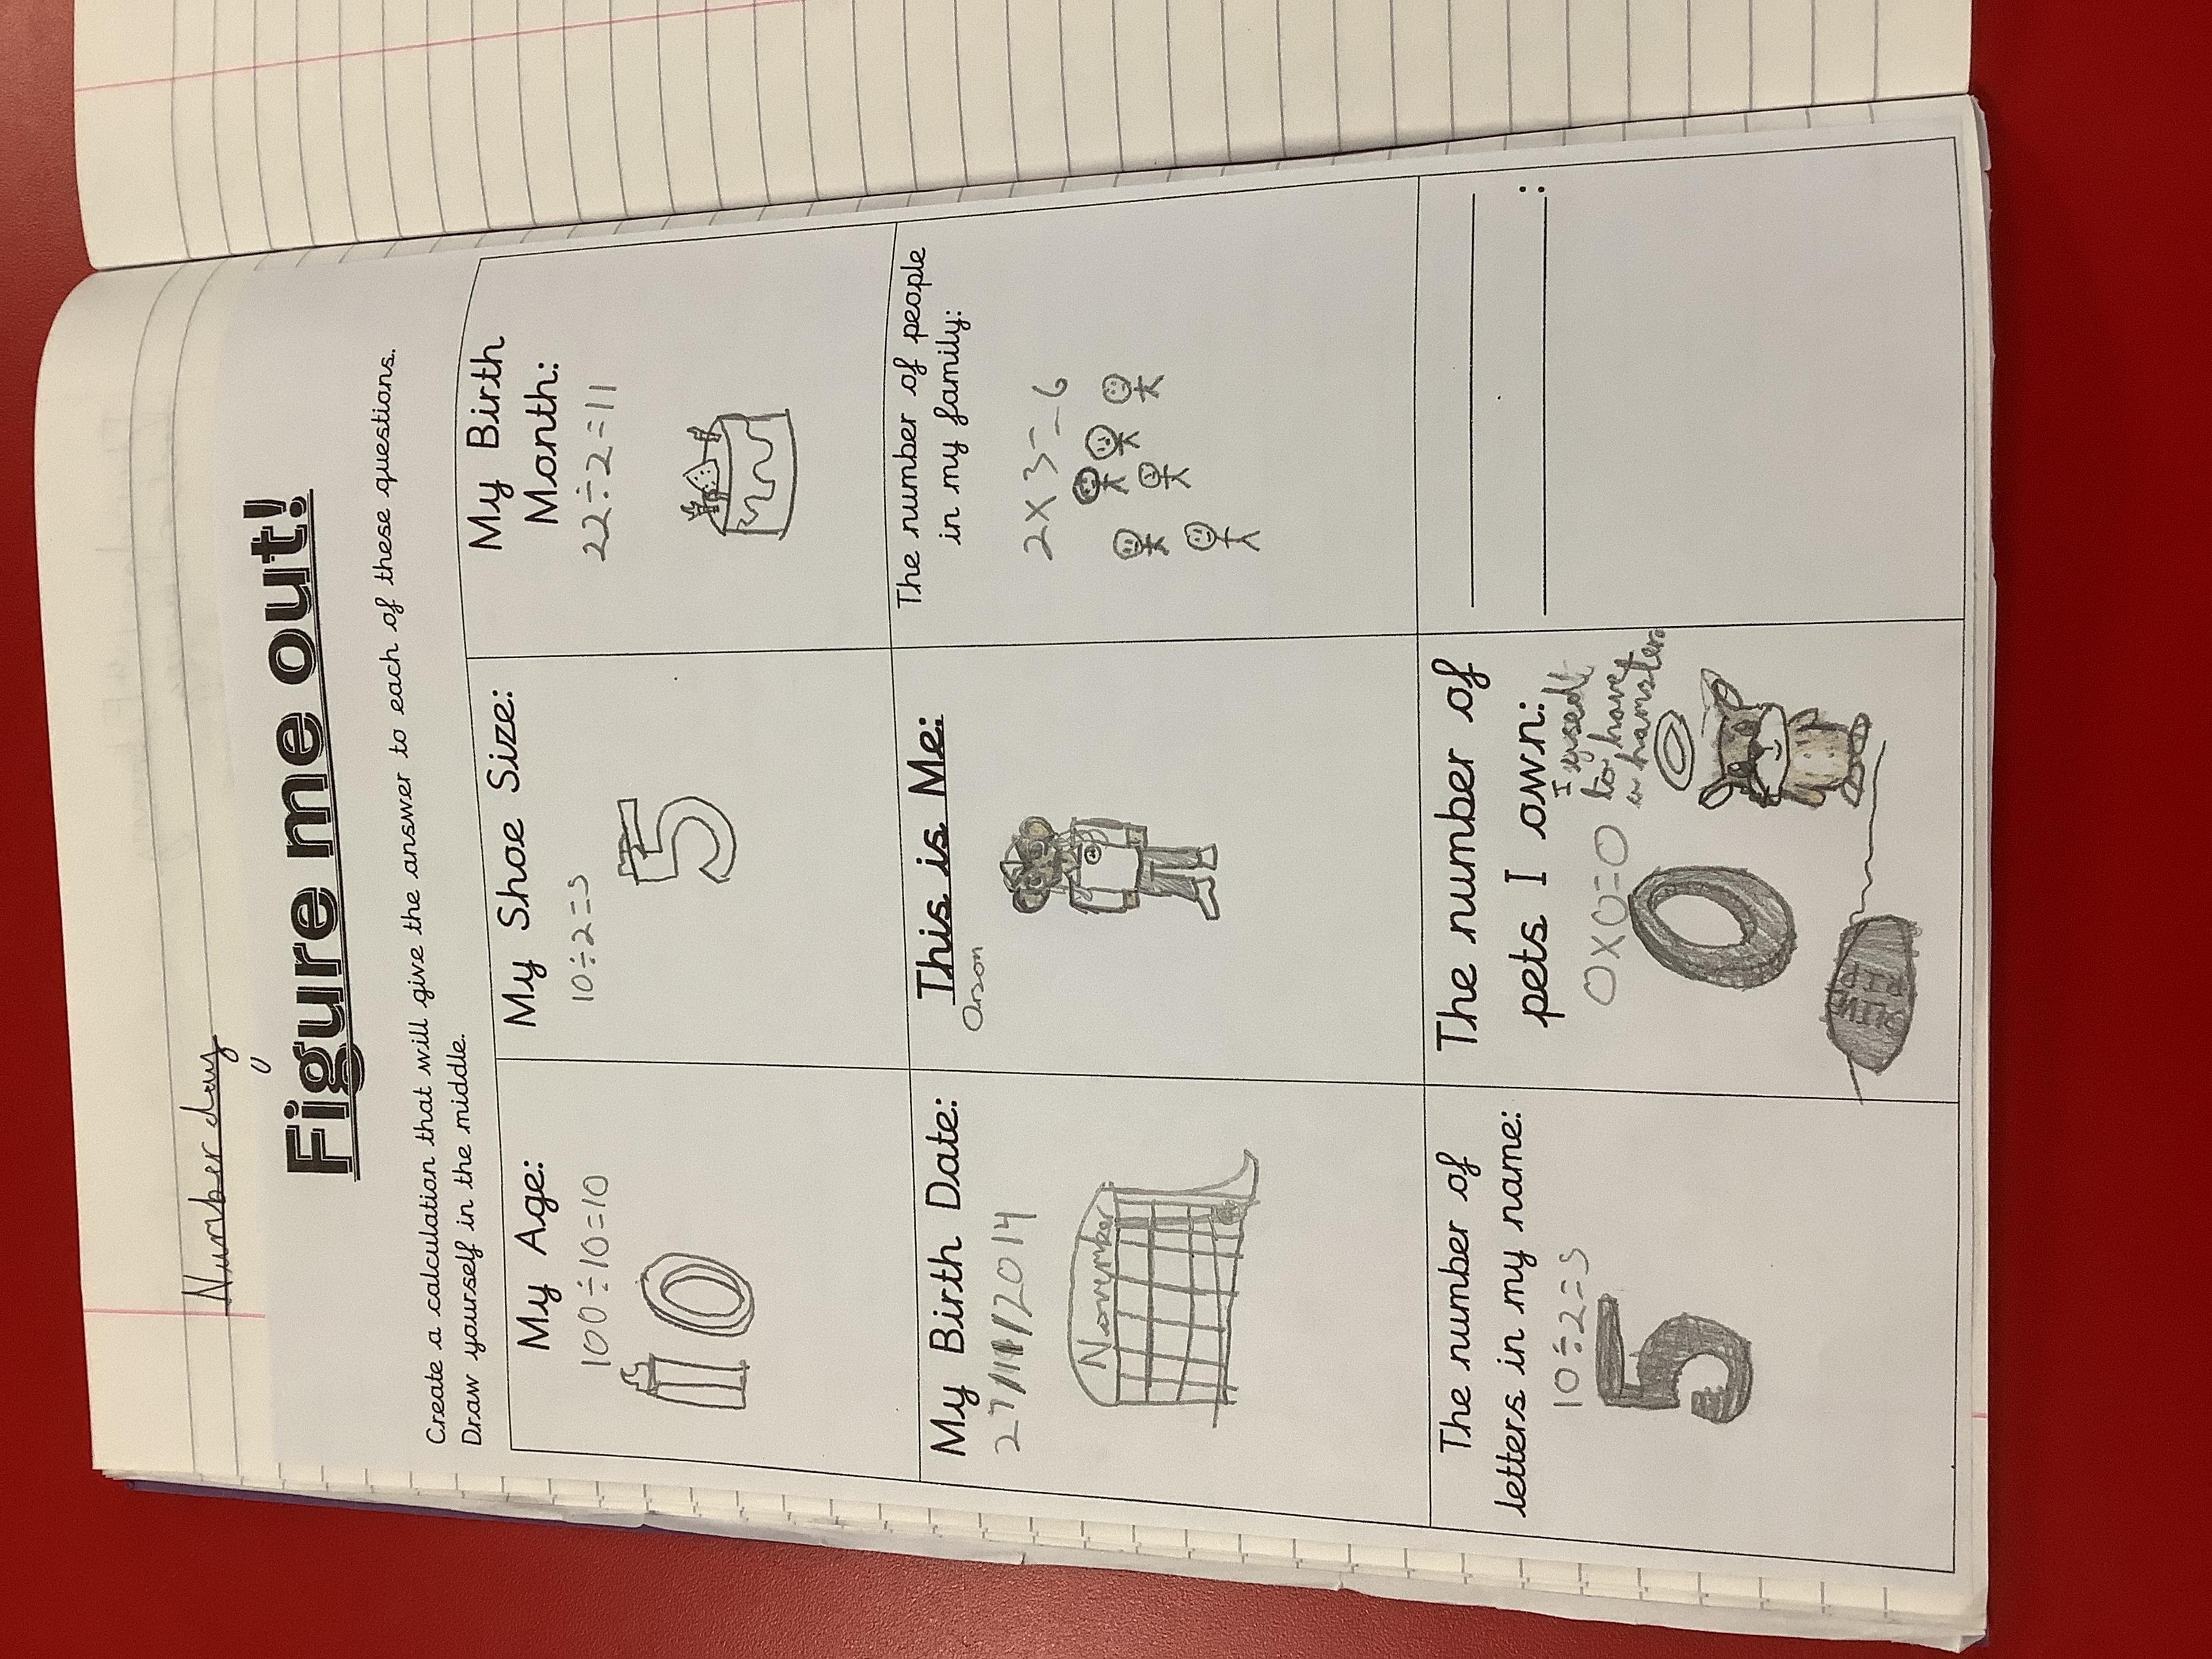 Number day
Figure me out!
Create a calculation that will give the answer to each of these questions.
Draw yourself in the middle.
My Age:
100÷10=10
10
My Shoe Size:
10÷2=5
5
My Birth
Month:
22÷2=11
My Birth Date:
27/11/2014
November
This is Me:
Orson
The number of people
in my family:
2×3=6
The number of
letters in my name:
10÷2=5
5
The number of
pets I own:
0×0=0
I used
to have
a hamster
0
RIP
: